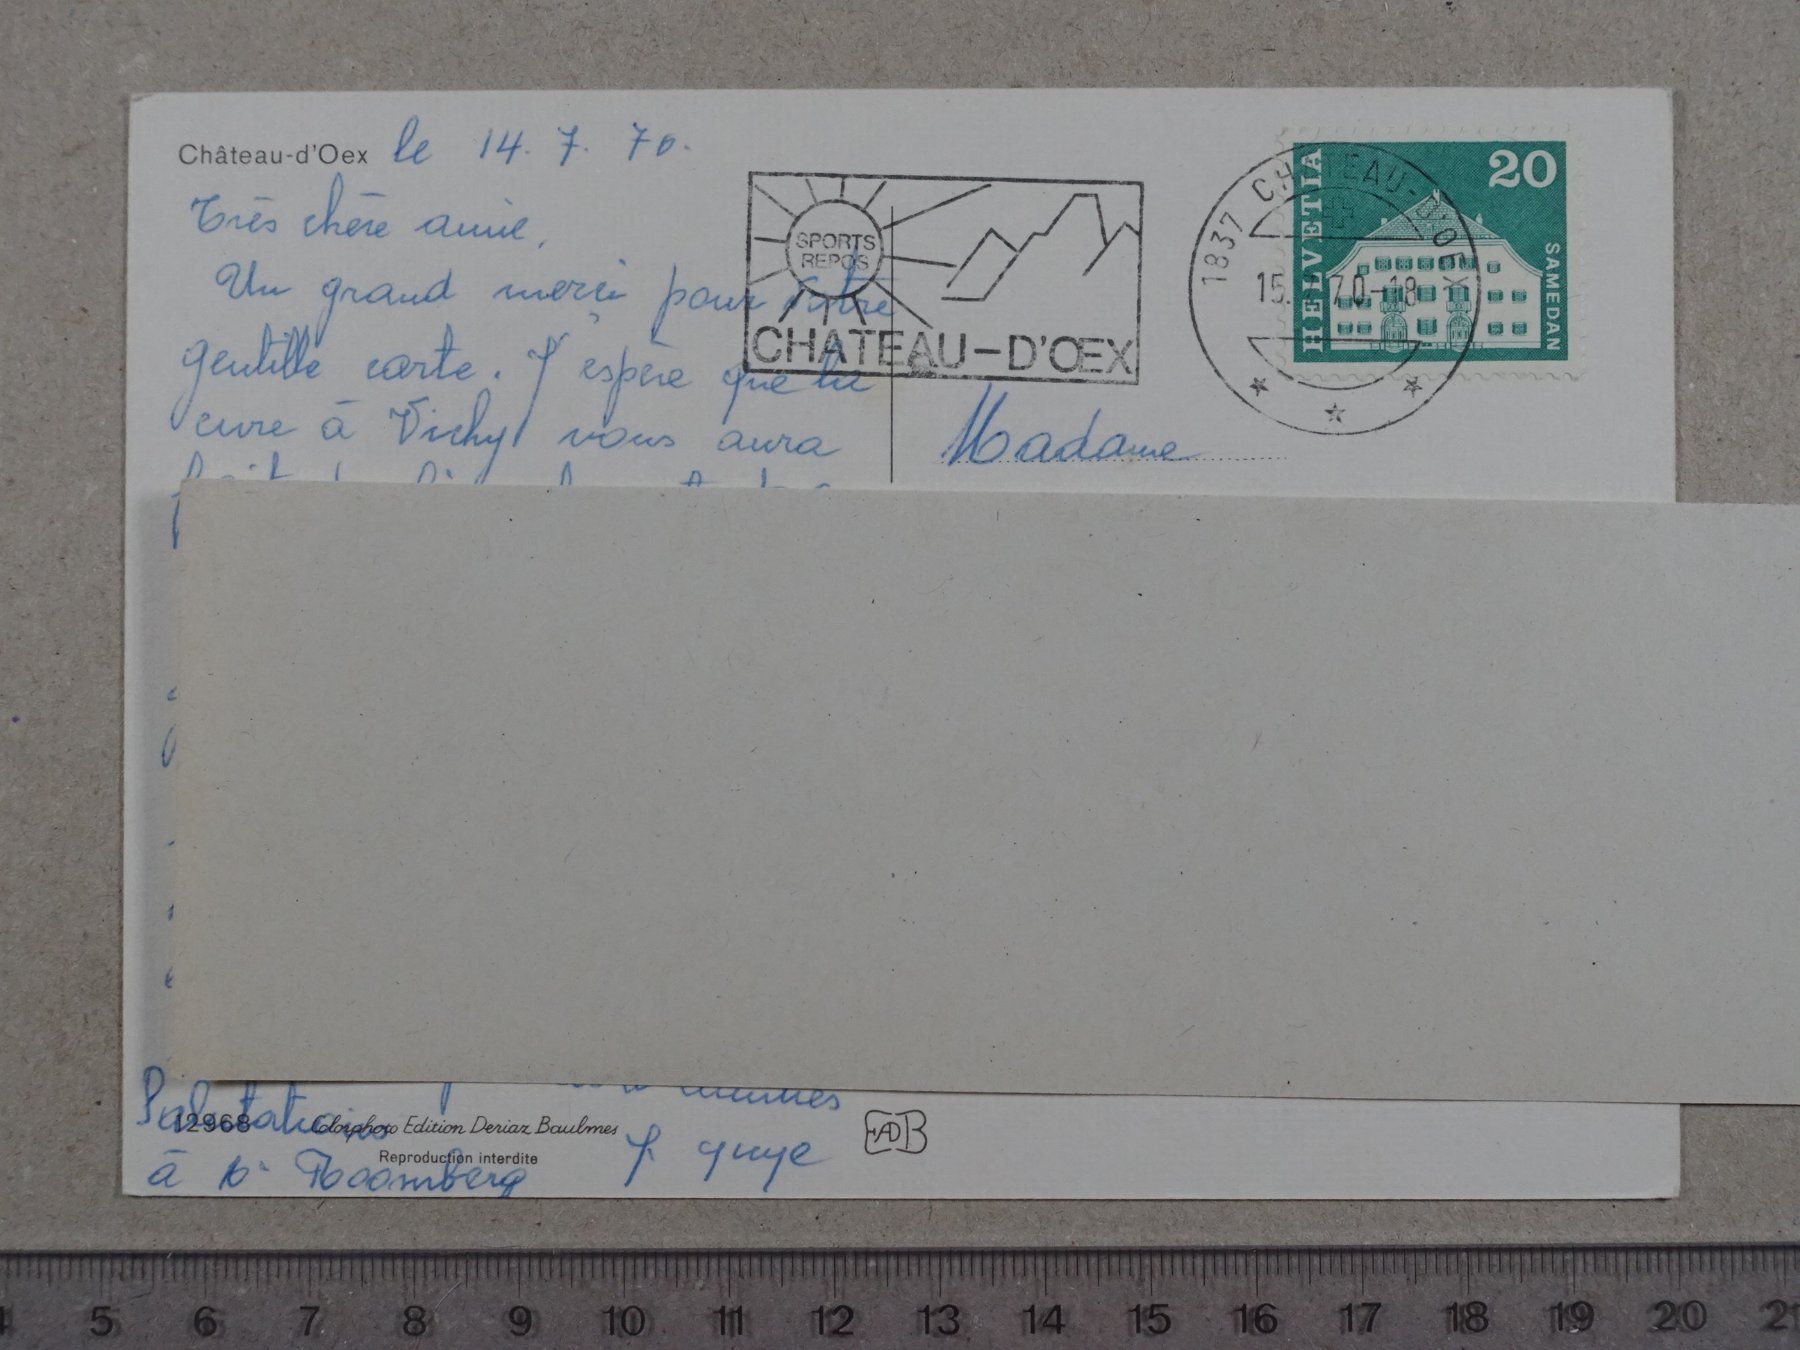 Château-d'Oex le 14.7.70.
Très chère amie,
Un grand merci pour votre
gentille carte. J'espère que la
cure à Vichy vous aura
SPORTS
REPOS
CHATEAU-D'ŒX
1837 CHATEAU-D'OEX
15. 70-18
HELVETIA
20
SAMEDAN
Madame
Salutations
à
12968 Colorphoto Edition Deriaz Baulmes
Reproduction interdite
EADB
4 5 6 7 8 9 10 11 12 13 14 15 16 17 18 19 20 21